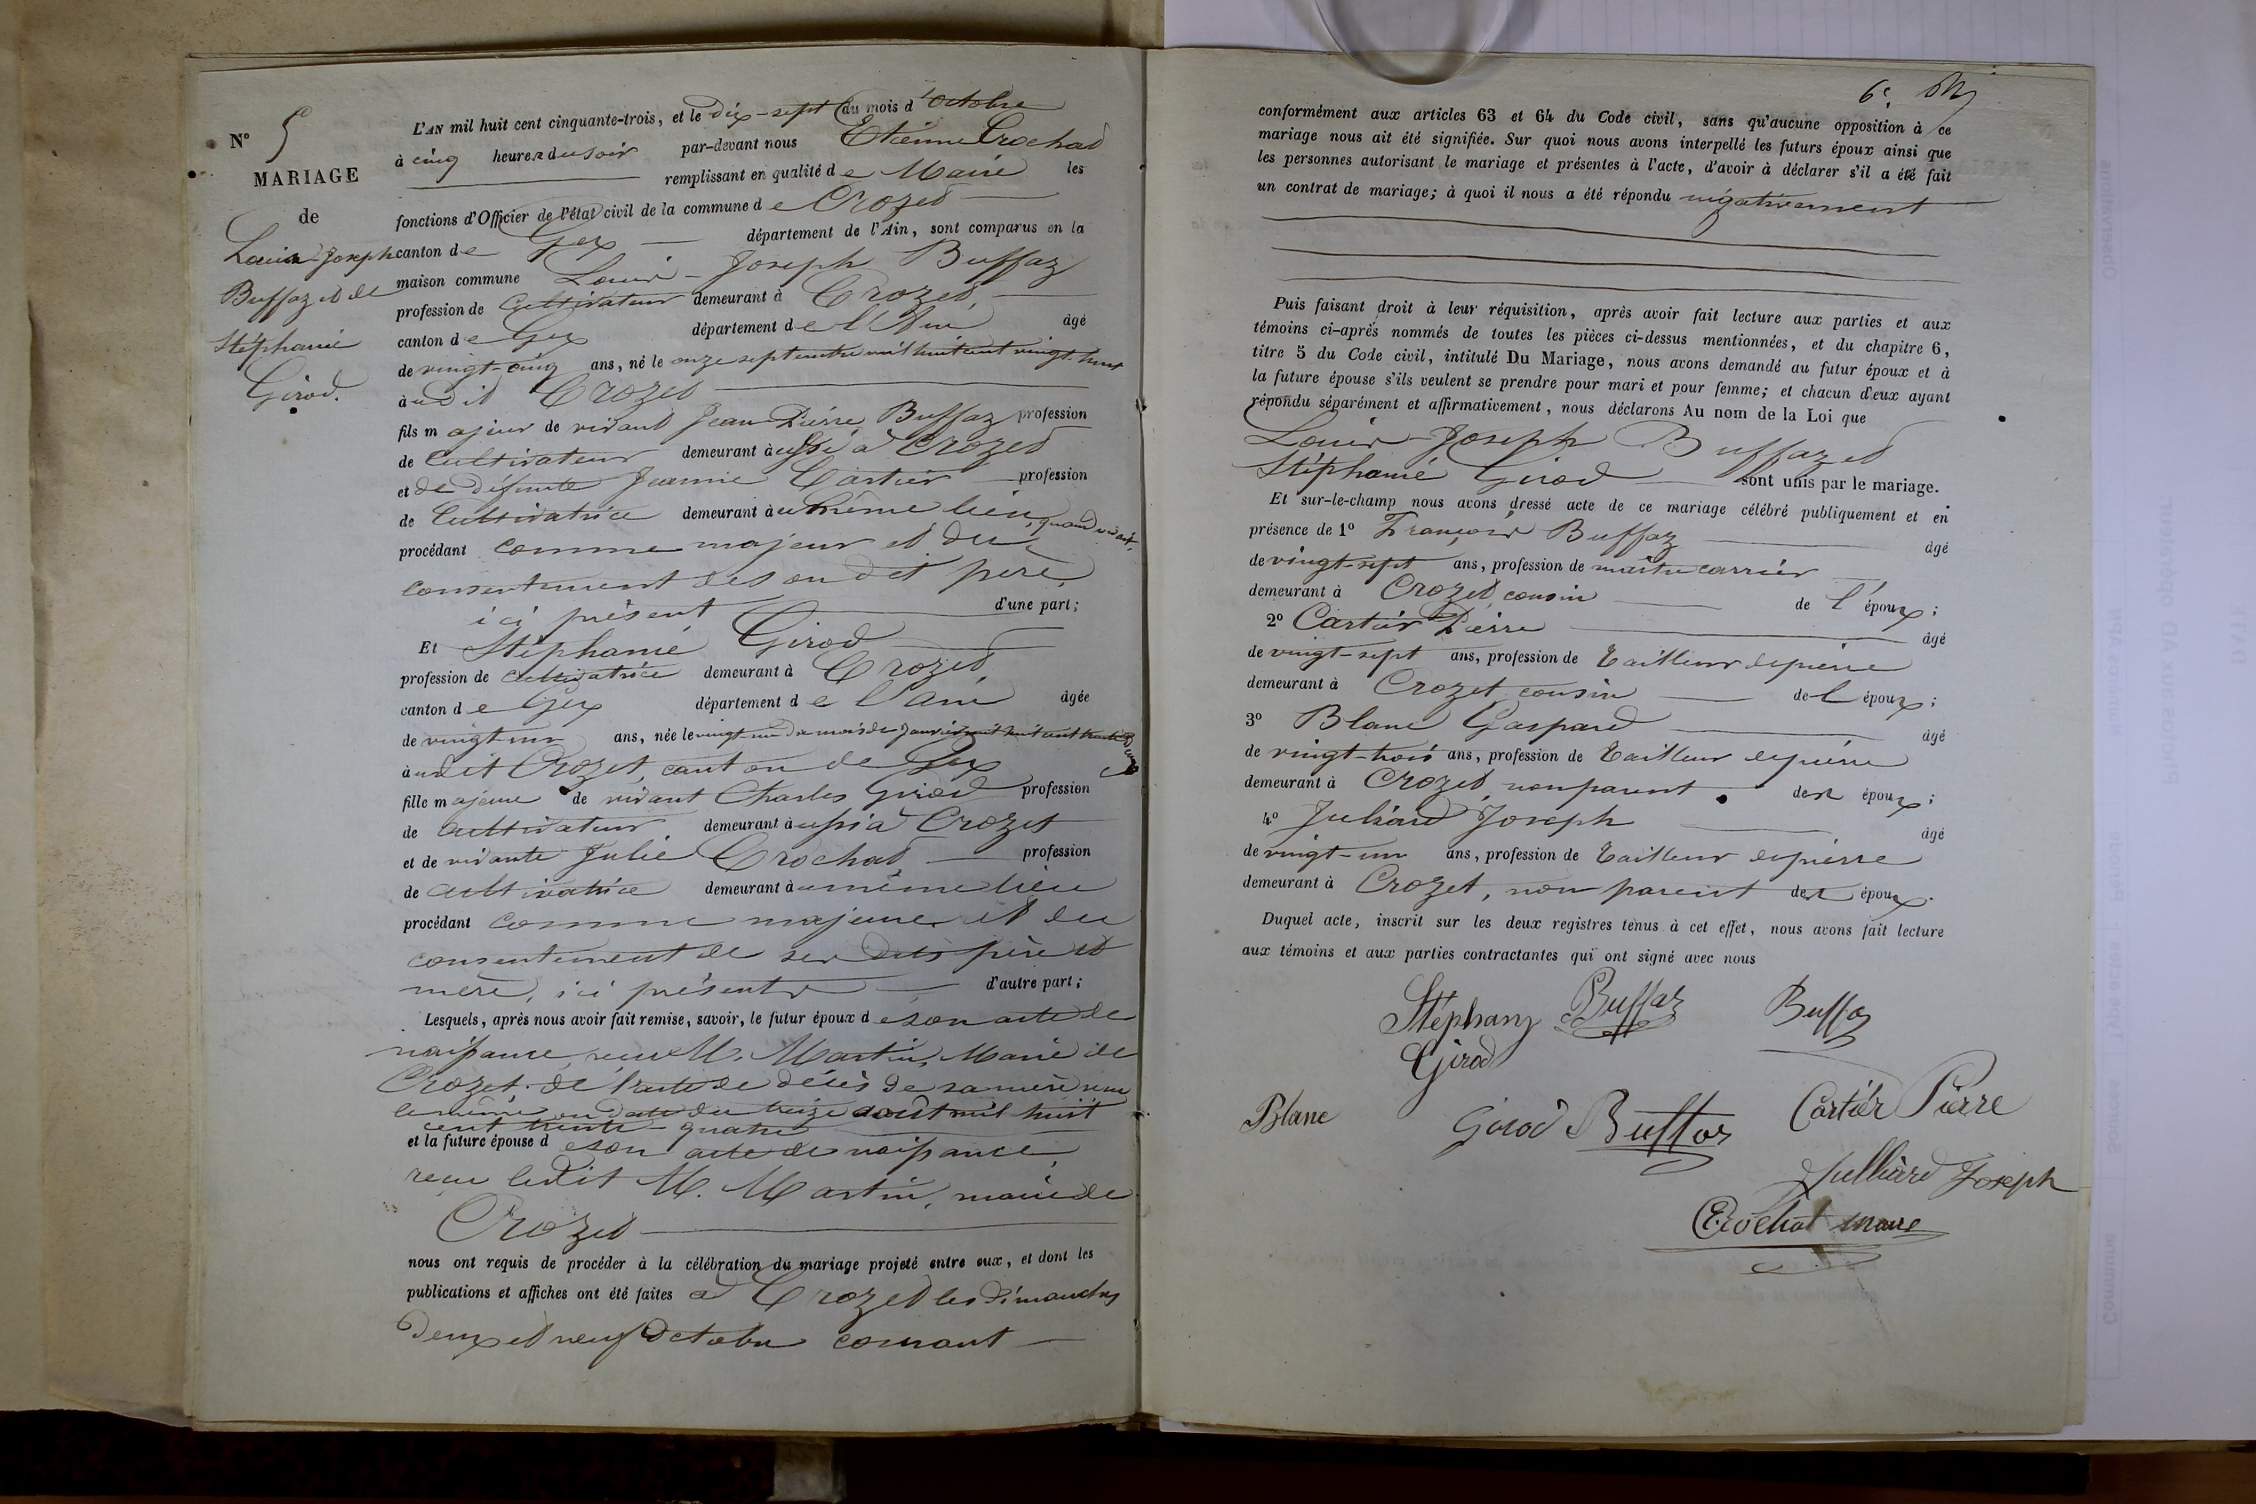 N° 5
MARIAGE
de
Louis-Joseph
Buffaz et de
Stéphanie
Girod.
L'AN mil huit cent cinquante-trois, et le dix-sept du mois d'octobre
à cinq heures du soir par-devant nous Etienne Crochat
remplissant en qualité de Maire les
fonctions d'Officier de l'état civil de la commune de Crozet
canton de Gex département de l'Ain, sont comparus en la
maison commune Louis-Joseph Buffaz
profession de Cultivateur demeurant à Crozet,
canton de Gex département de l'Ain âgé
de vingt-cinq ans, né le onze septembre mil huit cent vingt-huit
audit Crozet
fils majeur de vivant Jean-Pierre Buffaz profession
de Cultivateur demeurant aussi à Crozet
et de défunte Jeannie Cartier profession
de Cultivatrice demeurant au même lieu, quand vivait,
procédant comme majeur et du
consentement de son dit père,
ici présent d'une part;
Et Stéphanie Girod
profession de cultivatrice demeurant à Crozet,
canton de Gex département de l'Ain âgée
de vingt-un ans, née le vingt-un du mois de Janvier mil huit cent trente
audit Crozet, canton de Gex
fille majeure de vivant Charles Girod profession
de Cultivateur demeurant aussi à Crozet
et de vivante Julie Crochat profession
de cultivatrice demeurant au même lieu
procédant comme majeure et du
consentement de ses dits père et
mère, ici présents d'autre part;
Lesquels, après nous avoir fait remise, savoir, le futur époux de son acte de
naissance, reçu M. Martin, Maire de
Crozet. de l'acte de décès de sa mère reçu
le même en date du treize août mil huit
cent trente-quatre
et la future épouse de son acte de naissance,
reçu ledit M. Martin, maire de
Crozet
nous ont requis de procéder à la célébration du mariage projeté entre eux, et dont les
publications et affiches ont été faites à Crozet les dimanches
deux et neuf Octobre courant
6e.
conformément aux articles 63 et 64 du Code civil, sans qu'aucune opposition à ce
mariage nous ait été signifiée. Sur quoi nous avons interpellé les futurs époux ainsi que
les personnes autorisant le mariage et présentes à l'acte, d'avoir à déclarer s'il a été fait
un contrat de mariage; à quoi il nous a été répondu négativement
Puis faisant droit à leur réquisition, après avoir fait lecture aux parties et aux
témoins ci-après nommés de toutes les pièces ci-dessus mentionnées, et du chapitre 6,
titre 5 du Code civil, intitulé Du Mariage, nous avons demandé au futur époux et à
la future épouse s'ils veulent se prendre pour mari et pour femme; et chacun d'eux ayant
répondu séparément et affirmativement, nous déclarons Au nom de la Loi que
Louis-Joseph Buffaz et
Stéphanie Girod sont unis par le mariage.
Et sur-le-champ nous avons dressé acte de ce mariage célébré publiquement et en
présence de 1° François Buffaz âgé
de vingt-sept ans, profession de maître carrier
demeurant à Crozet, cousin de l'époux;
2° Cartier Pierre âgé
de vingt-sept ans, profession de Tailleur de pierre
demeurant à Crozet, cousin de l'époux;
3° Blanc Gaspard âgé
de vingt-trois ans, profession de Tailleur de pierre
demeurant à Crozet, non parent des époux;
4° Julliard Joseph âgé
de vingt-un ans, profession de Tailleur de pierre
demeurant à Crozet, non parent des époux.
Duquel acte, inscrit sur les deux registres tenus à cet effet, nous avons fait lecture
aux témoins et aux parties contractantes qui ont signé avec nous
Stéphany Buffaz Buffaz
Girod
Blanc Girod Buffaz Cartier Pierre
Julliard Joseph
Crochat maire